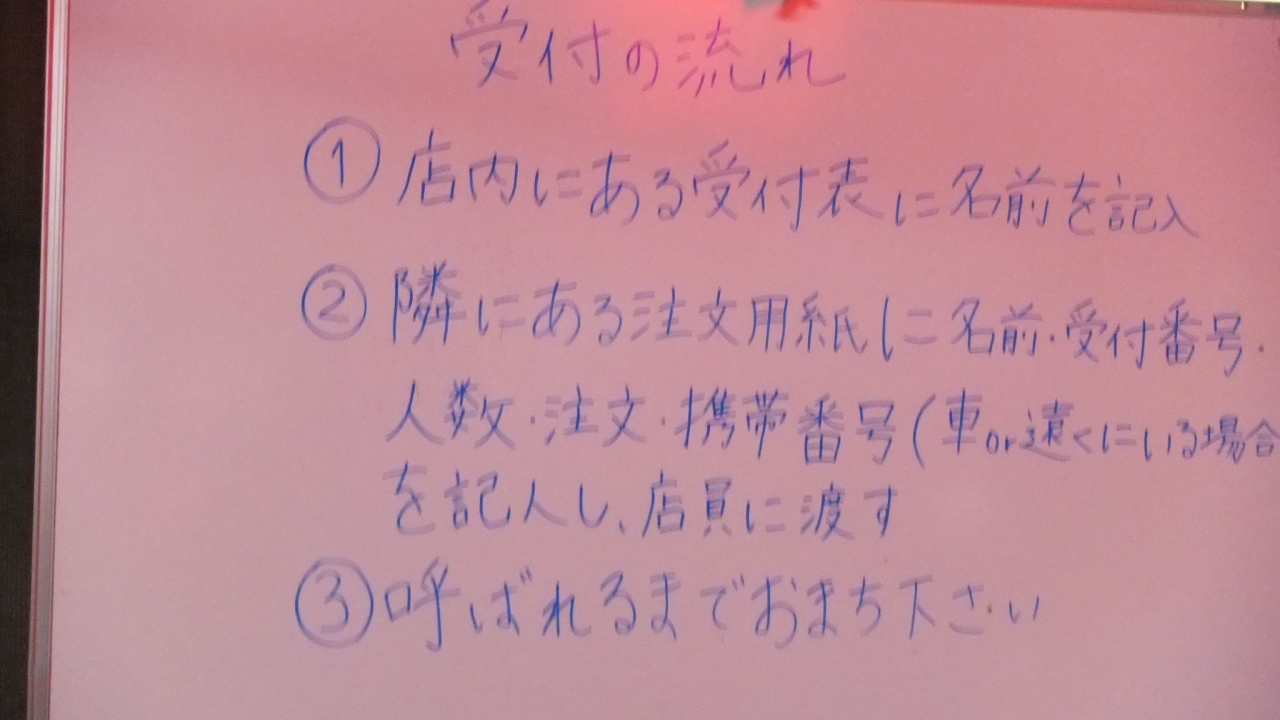 受付の流れ
① 店内にある受付表に名前を記入
② 隣にある注文用紙に名前・受付番号・
人数・注文・携帯番号(車or遠くにいる場合
を記入し、店員に渡す
③ 呼ばれるまでおまち下さい